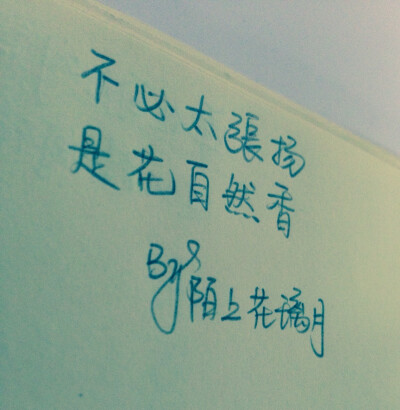 不必太張扬
是花自然香
By 陌上花璃月